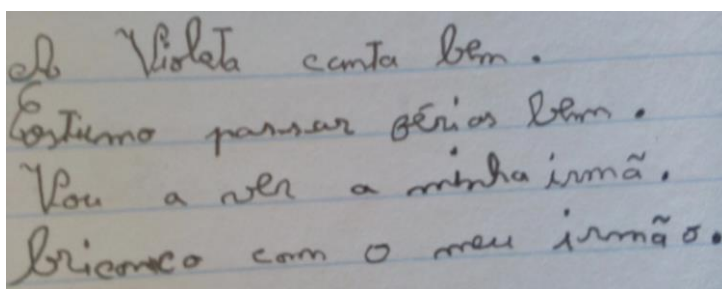 A Violeta canta bem.
Costumo passar férias bem.
Vou a ver a minha irmã.
bricanco com o meu irmão.